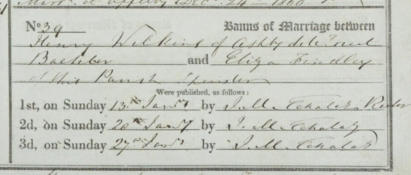 No 39 Banns of Marriage between
Henry Wilkins of Ashby de la Zouch
Bachelor and Eliza Findley
of this Parish Spinster
Were published, as follows:
1st, on Sunday 13th Jany by J. M. Echalaz Rector
2d, on Sunday 20th Jany by J. M. Echalaz
3d, on Sunday 27th Jany by J. M. Echalaz